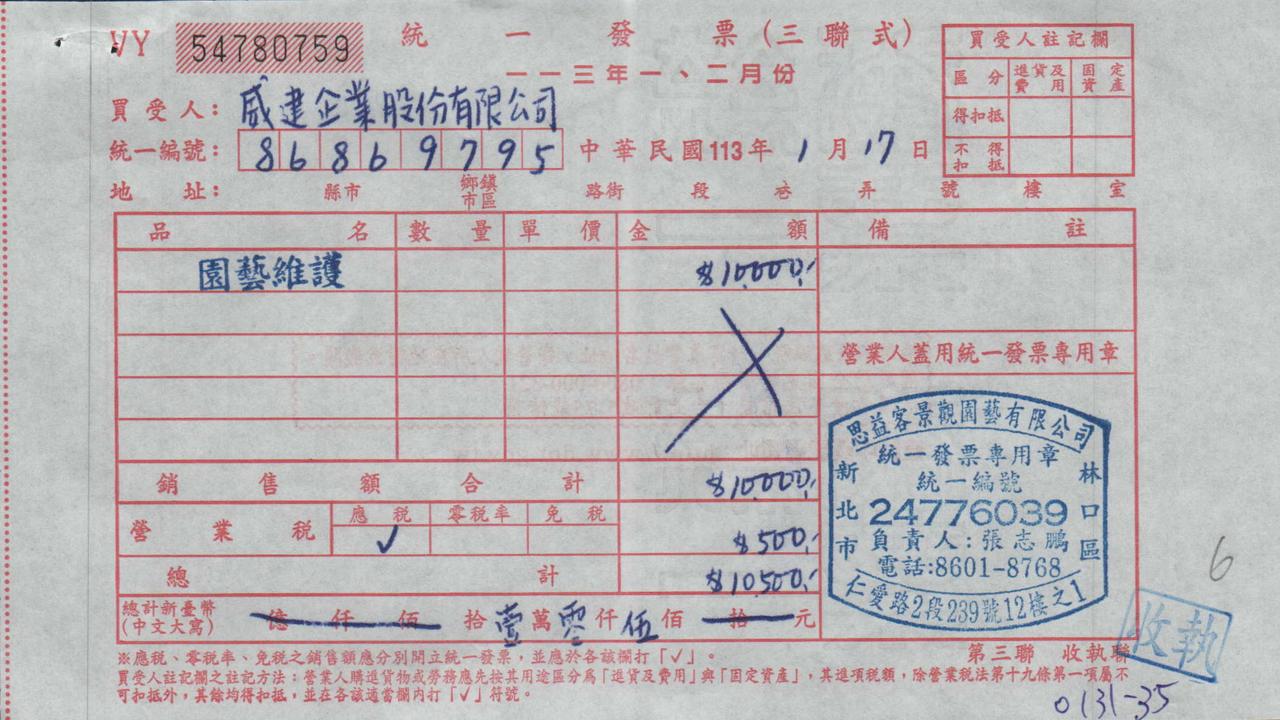 VY 54780759 統一發票(三聯式)
一一三年一、二月份
買受人註記欄
區分 進貨及費用 固定資產
得扣抵
不得扣抵
買受人: 威建企業股份有限公司
統一編號: 86869795 中華民國113年1月17日
地址: 縣市 鄉鎮市區 路街 段 巷 弄 號 樓 室
品名 數量 單價 金額 備註
園藝維護 $10,000,-
營業人蓋用統一發票專用章
銷售額合計 $10,000,-
營業稅 應稅 零稅率 免稅
✓ $500,-
總計 $10,500,-
總計新臺幣(中文大寫) 億 仟 佰 拾 壹 萬 零 仟 伍 佰 拾 元
思益客景觀園藝有限公司
統一發票專用章
統一編號
24776039
負責人:張志鵬
電話:8601-8768
新北市 林口區
仁愛路2段239號12樓之1
6
收執
※應稅、零稅率、免稅之銷售額應分別開立統一發票,並應於各該欄打「✓」。
第三聯 收執聯
買受人註記欄之註記方法:營業人購進貨物或勞務應先按其用途區分為「進貨及費用」與「固定資產」,其進項稅額,除營業稅法第十九條第一項屬不
可扣抵外,其餘均得扣抵,並在各該適當欄內打「✓」符號。
0131-35